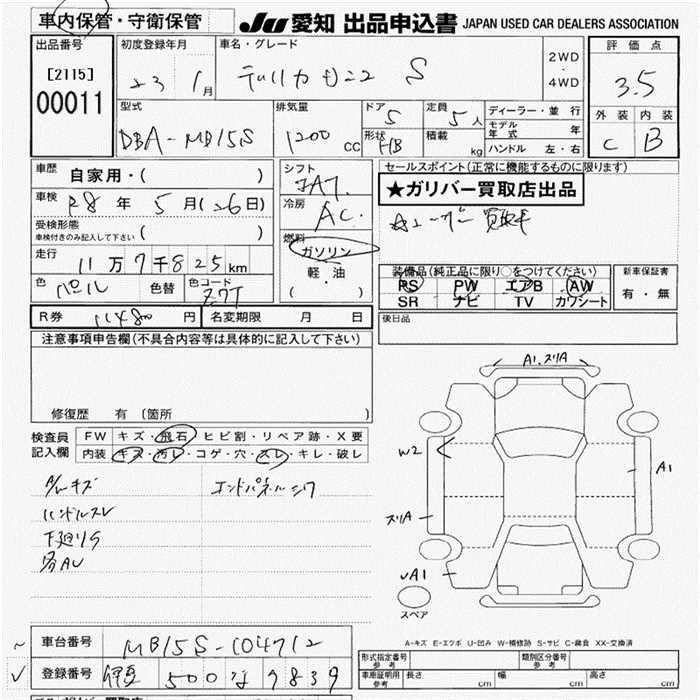 車内保管・守衛保管
JU 愛知 出品申込書 JAPAN USED CAR DEALERS ASSOCIATION
出品番号
[2115]
00011
初度登録年月
23 1月
車名・グレード
デリカ S
2WD
・
4WD
評価点
3.5
型式
DBA-MB15S
排気量
1200 cc
ドア
5
定員
5人
形状
HB
積載
kg
ディーラー・並行
モデル年式 年
ハンドル 左・右
外装
C
内装
B
車歴
自家用・( )
車検
R8年 5月(26日)
受検形態
車検付きのみ記入して下さい ( )
走行
11万7千825km
色
パール
色替
色コード
Z7T
シフト
IAT
冷房
AC
燃料
ガソリン
軽・油
( )
セールスポイント(正常に機能するものに限ります)
★ガリバー買取店出品
装備品(純正品に限り○をつけてください)
PS PW エアB AW
SR ナビ TV カワシート
新車保証書
有・無
後日品
R券 11480円
名変期限 月 日
注意事項申告欄(不具合内容等は具体的に記入して下さい)
修復歴 有 (箇所 )
検査員記入欄
FW キズ・飛石・ヒビ割・リペア跡・X要
内装 キズ・汚レ・コゲ・穴・スレ・キレ・破レ
A/Wキズ
ハンドルスレ
下廻りS
各AU
エンドパネルシワ
A1.スリA
W2
A1
スリA
A1
スペア
A-キズ E-エクボ U-凹み W-補修跡 S-サビ C-腐食 XX-交換済
車台番号 MB15S-104712
登録番号 500 な 9839
形式指定番号 参考
類別区分番号 参考
車庫証明用 参考
長さ cm
幅 cm
高さ cm